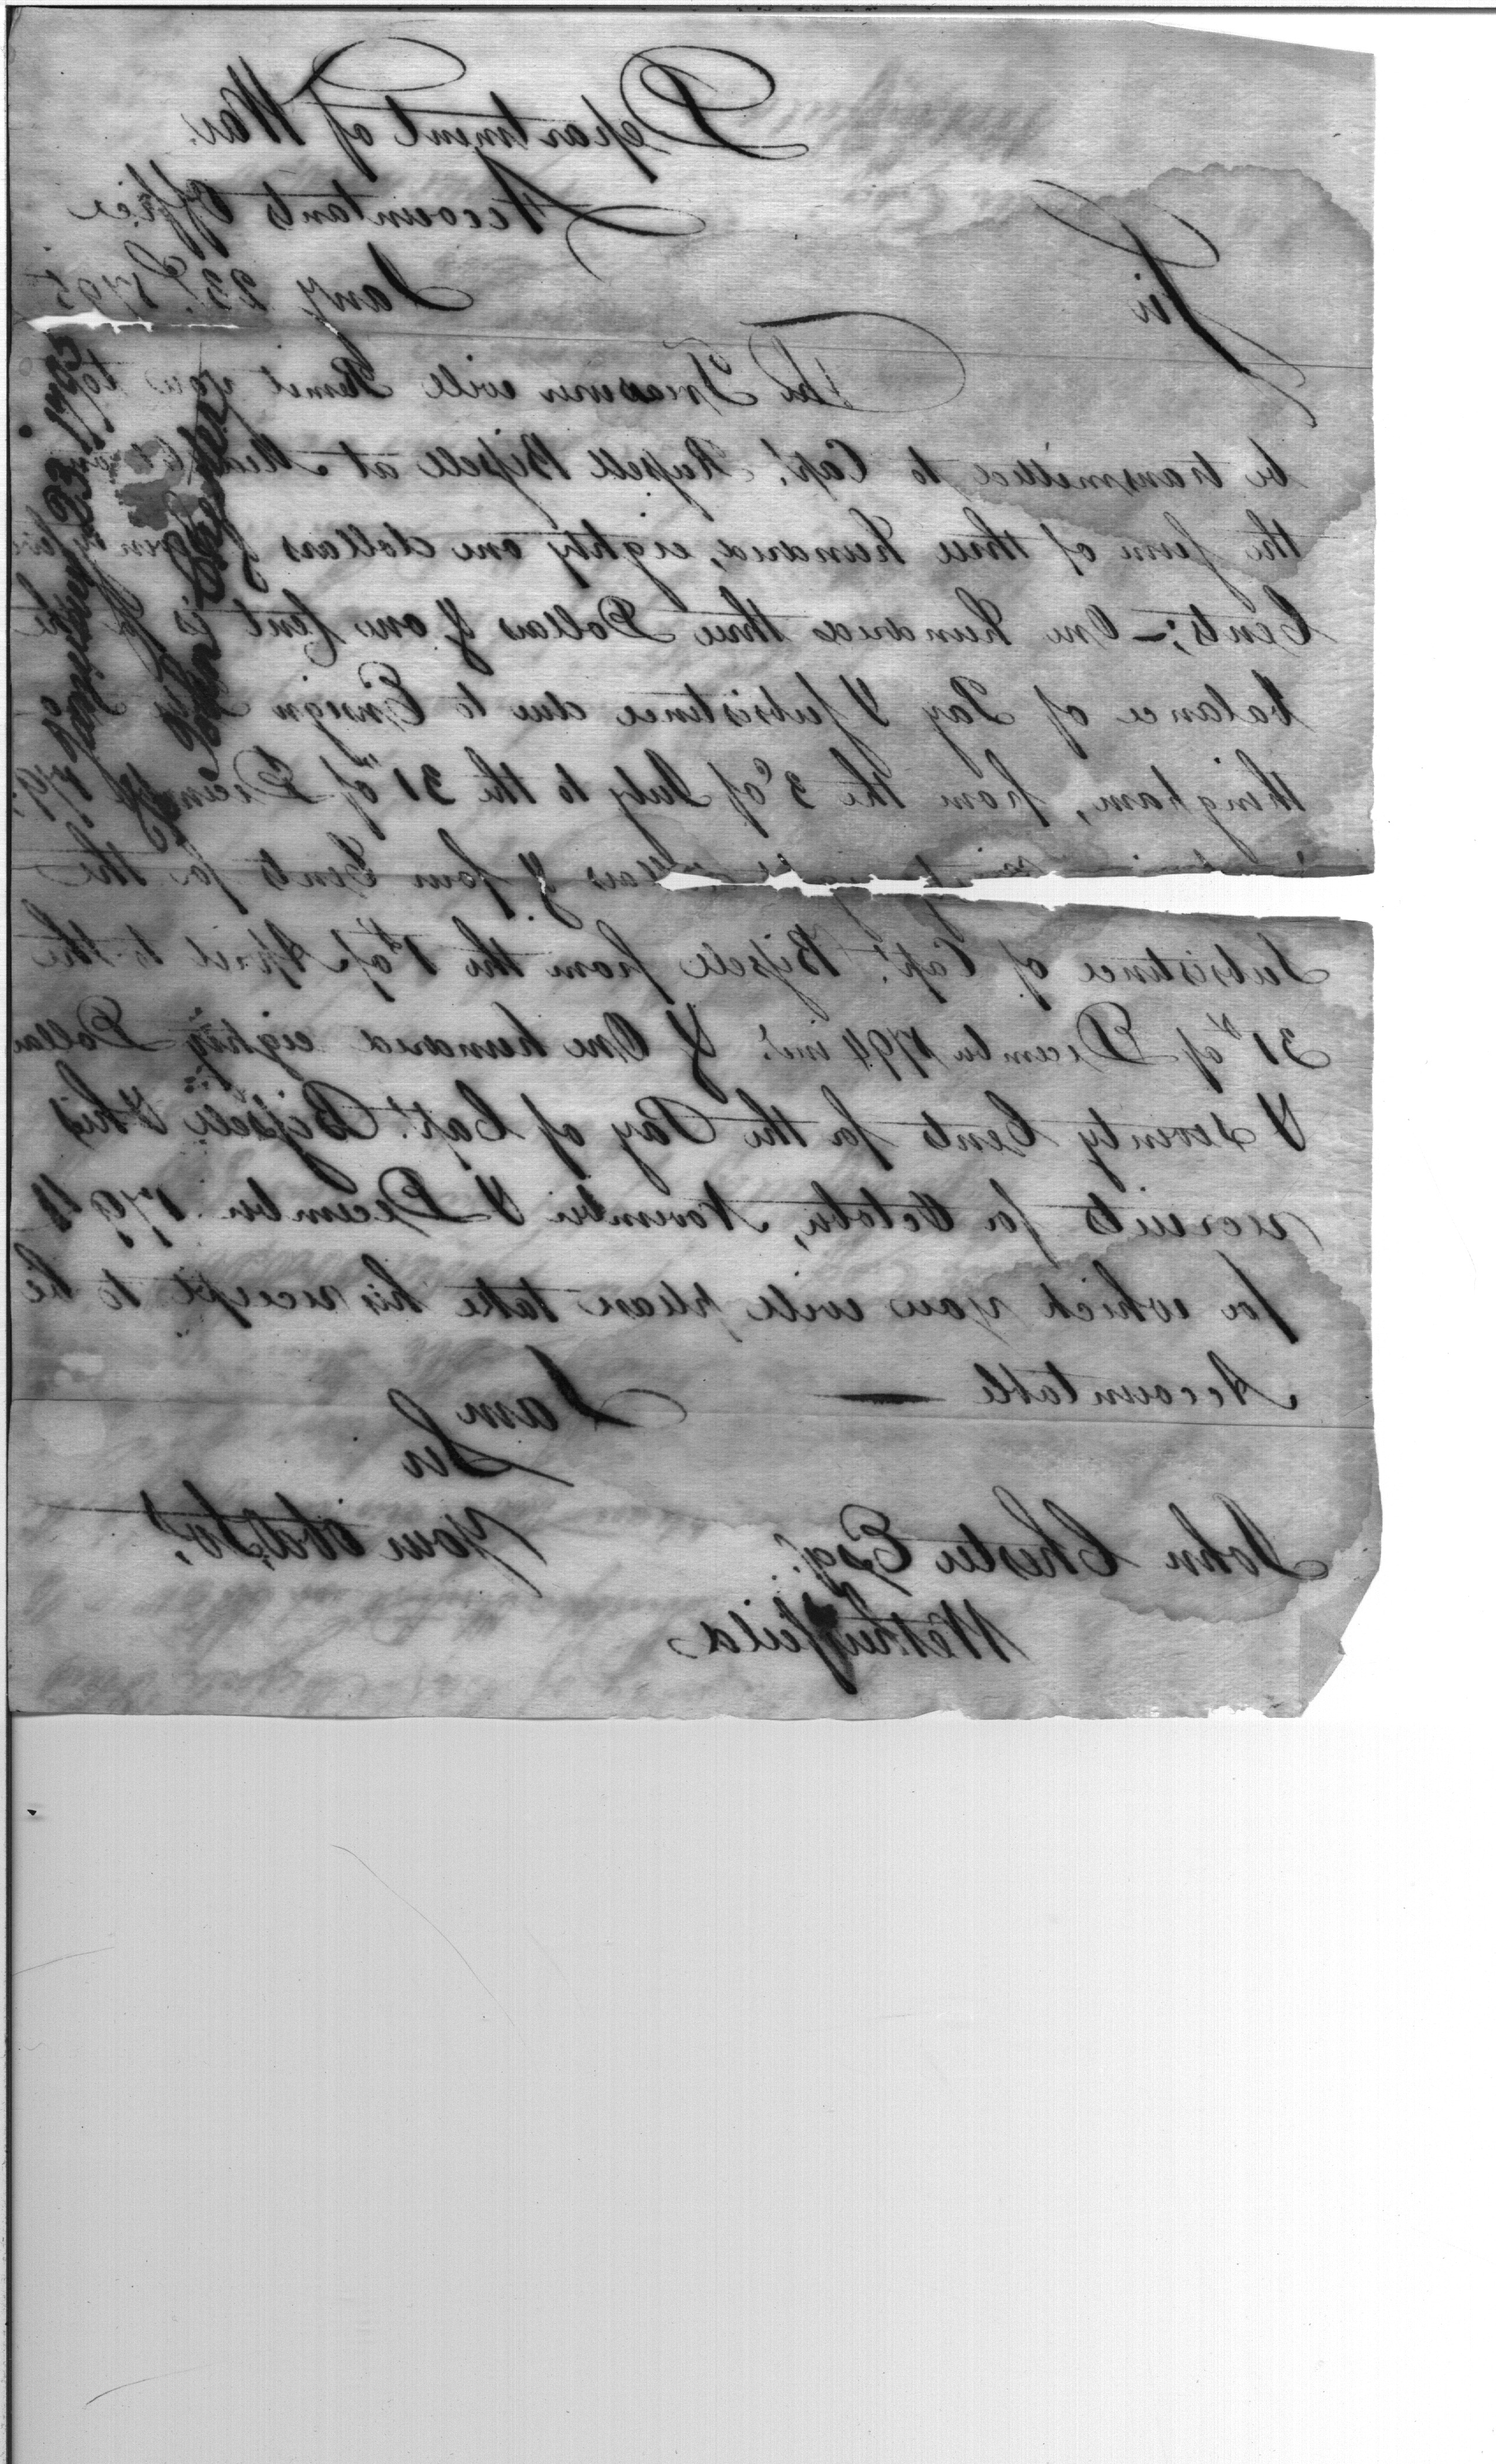 Department of War
Accountants Office
Jany 23d. 1795
Sir
The Treasurer will Remit you to
be transmitted to Capt. Russell Bissell at
the sum of three hundred, eighty one dollars & seventy five
Cents;— One hundred three Dollars & one Cent is for the
balance of Pay & subsistence due to Ensign
thingham, from the 3d of July to the 31st of December 179
dollars & four Cents for the
Subsistence of Capt. Bissell from the 1st of April to the
31st of December 1794 incl. & One hundred eighty Dollars
& seventy Cents for the Pay of Capt. Bissell & his
recruits for October, November & December 1794
for which you will please take his receipt to be
Accountable —
I am
Sir
Your Obed. Sert.
John Chester Esqr.
Wethersfeild
23 1795
John Chester